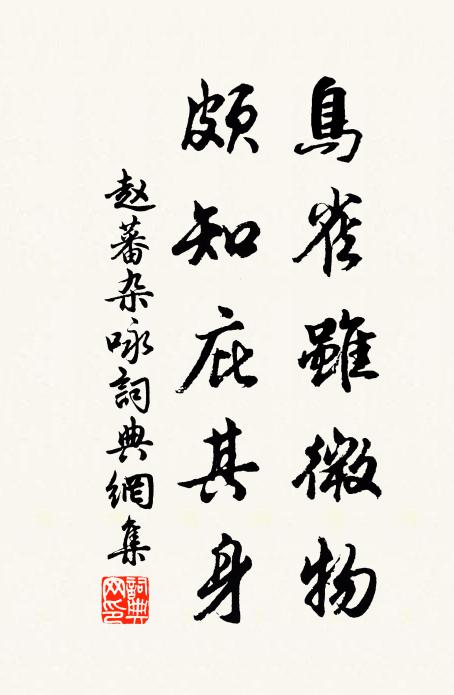 鳥雀雖微物
頗知庇其身
赵蕃杂咏詞典網集
詞典
网印